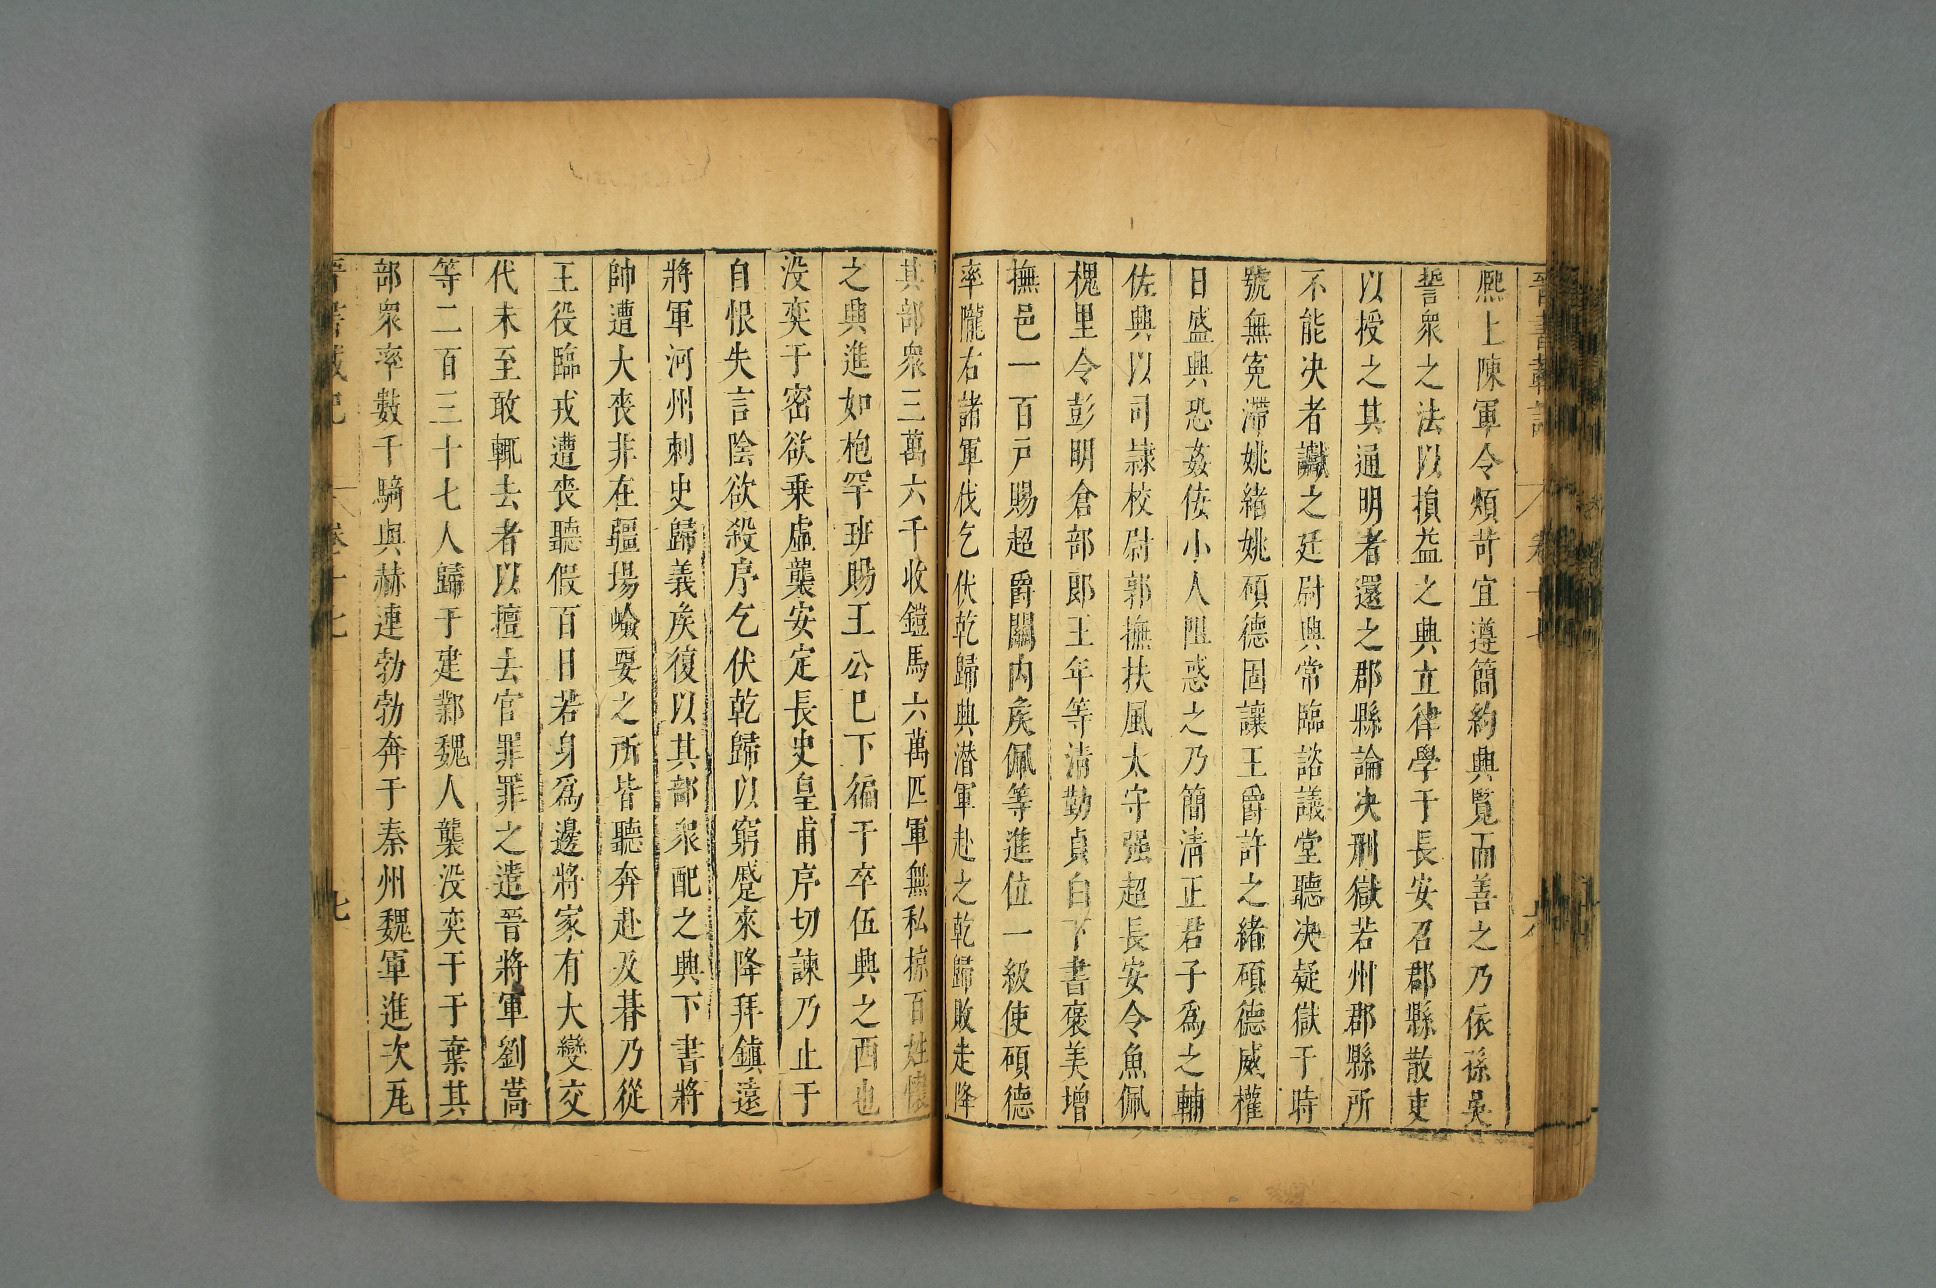 晉書載記 卷十七 六
熈上陳軍令煩苛宜遵簡約興覽而善之乃依孫吳
誓衆之法以損益之興立律學于長安召郡縣散吏
以授之其通明者還之郡縣論决刑獄若州郡縣所
不能决者讞之廷尉興常臨諮議堂聽决疑獄于時
號無寃滯姚緒姚碩德固讓王爵許之緒碩德威權
日盛興恐姦佞小人阻惑之乃簡清正君子爲之輔
佐興以司隷校尉郭撫扶風太守强超長安令魚佩
槐里令彭明倉部郎王年等清勤貞白下書褒美增
撫邑一百戸賜超爵關内矦佩等進位一級使碩德
率隴右諸軍伐乞伏乾歸興潜軍赴之乾歸敗走降
其部衆三萬六千收鎧馬六萬匹軍無私掠百姓懷
之興進如枹罕班賜王公已下徧于卒伍興之西也
没奕于密欲乗虛襲安定長史皇甫序切諫乃止于
自恨失言陰欲殺序乞伏乾歸以窮蹙來降拜鎮遠
將軍河州刺史歸義矦復以其部衆配之興下書將
帥遭大喪非在疆場嶮要之所皆聽奔赴及朞乃從
王役臨戎遭喪聽假百日若身爲邊將家有大變交
代未至敢輒去者以擅去官罪罪之遣晉將軍劉嵩
等二百三十七人歸于建鄴魏人襲没奕于于棄其
部衆率數千騎與赫連勃勃奔于秦州魏軍進次瓦
晉書載記 卷十七 七